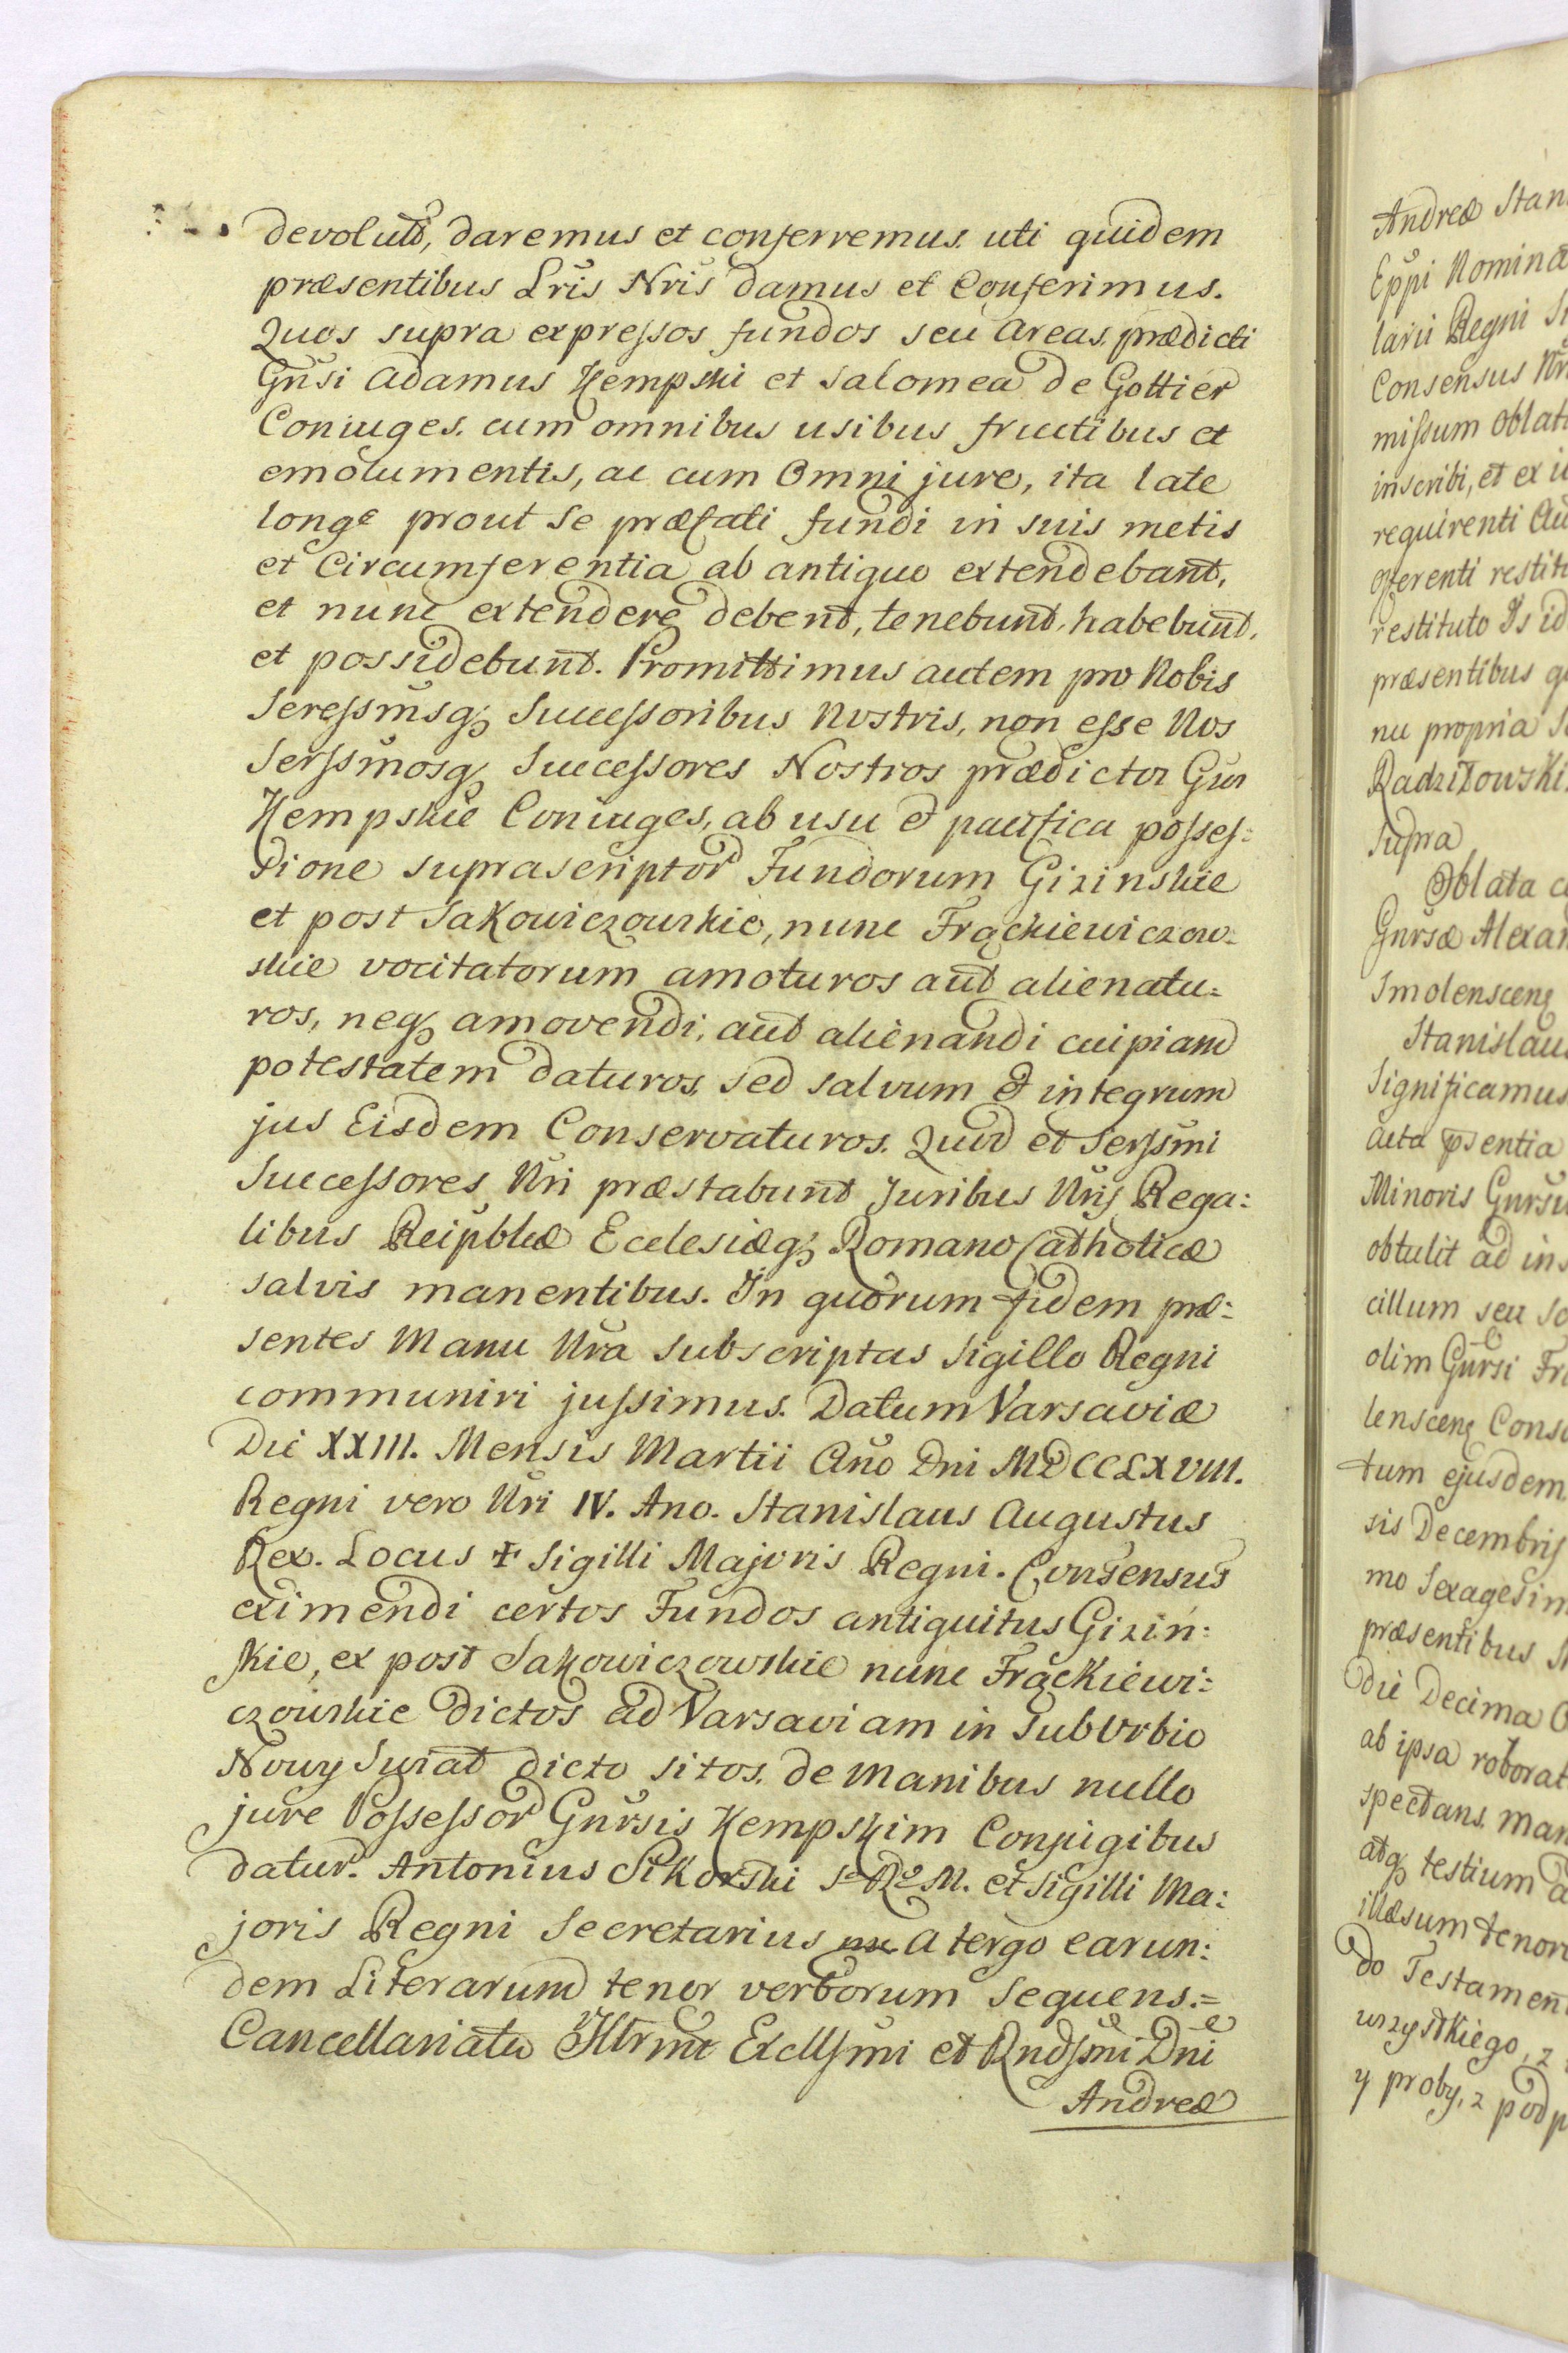 devolut, daremus et conferremus. uti quidem
præsentibus Lris Nris damus et Conferimus.
Quos supra expressos fundos seu Areas, prædicti
Gnsi Adamus Kempski et Salomea de Gottier
Coniuges. cum omnibus usibus fructibus et
emolumentis, ac cum Omni jure, ita late
longe prout Se præfati fundi in suis metis
et Circumferentia ab antiquo extendebant,
et nunc extendere debent, tenebunt, habebunt,
et possidebunt. Promittimus autem pro Nobis
Seressmsq; Successoribus Nostris, non esse Nos
Serssmosq; Successores Nostros prædictor Gnr
Kempskie Coniuges, ab usu et pacifica posses:
sione suprascriptor Fundorum Gizinskie
et post Sakowiczowskie, nunc Frąckiewiczow:
skie vocitatorum amoturos aut alienatu:
ros, neq; amovendi, aut alienandi cuipiam
potestatem daturos, sed salvum et integrum
jus Eisdem Conservaturos. Quod et Serssmi
Successores Nri præstabunt Juribus Nris Rega:
libus Reipblcæ Ecclesiæq; Romano Catholicæ
salvis manentibus. In quorum fidem præ:
sentes Manu Nra Subscriptas Sigillo Regni
communiri jussimus. Datum Varsaviæ
Die XXIII. Mensis Martii Ano Dni MDCCLXVIII.
Regni vero Nri IV. Ano. Stanislaus Augustus
Rex. Locus ✝ Sigilli Majoris Regni. Consensus
eximendi certos Fundos antiquitus Gizin:
skie, ex post Sakowiczowskie nunc Frąckiewi:
czowskie dictos ad Varsaviam in Suburbio
Nowy Swiat dicto sitos. de Manibus nullo
jure Possessor Gnrsis Kempskim Conjugibus
datur. Antonius Sikorski S. R. M. et Sigilli Ma:
joris Regni Secretarius A tergo earun:
dem Literarum tenor verborum Sequens.=
Cancellariatu Illrmi Excllsmi et Rndssmi Dni
Andreæ
Andreæ Stan
Eppi Nomina
larii Regni
Consensus Nr
missum Oblat
inscribi, et ex
requirenti
offerenti restit
restituto Is id
præsentibus
nu propria
Radziłowski
Supra
Oblata
Gnrsæ Alexan
Smolenscen
Stanislaus
Significamus
Acta psentia
Minoris Gnrsu
obtulit ad ins
cillum seu
olim Gnrsi Fr
lenscen Cons
tum ejusdem
sis Decembris
mo Sexagesim
præsentibus
die Decima
ab ipsa roborat
spectans. Man
atq; testium
illæsum tenore
do Testament
wszystkiego, z
y proby, z podp